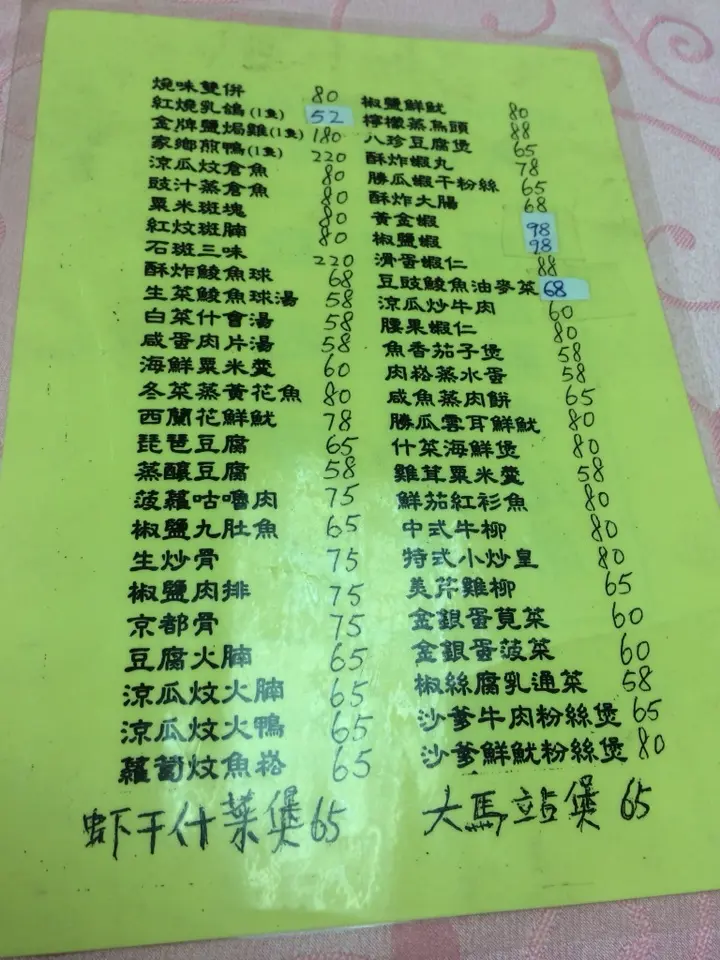 燒味雙併 80
紅燒乳鴿(1隻) 52
金牌鹽焗雞(1隻) 180
家鄉煎鴨(1隻) 220
涼瓜炆倉魚 80
豉汁蒸倉魚 80
粟米斑塊 80
紅炆斑腩 80
石斑三味 220
酥炸鯪魚球 68
生菜鯪魚球湯 58
白菜什會湯 58
咸蛋肉片湯 58
海鮮粟米羹 60
冬菜蒸黃花魚 80
西蘭花鮮魷 78
琵琶豆腐 65
蒸釀豆腐 58
菠蘿咕嚕肉 75
椒鹽九肚魚 65
生炒骨 75
椒鹽肉排 75
京都骨 75
豆腐火腩 65
涼瓜炆火腩 65
涼瓜炆火鴨 65
蘿蔔炆魚崧 65
虾干什菜煲 65
椒鹽鮮魷 80
檸檬蒸烏頭 88
八珍豆腐煲 65
酥炸蝦丸 78
勝瓜蝦干粉絲 65
酥炸大腸 68
黃金蝦 98
椒鹽蝦 98
滑蛋蝦仁 88
豆豉鯪魚油麥菜 68
涼瓜炒牛肉 60
腰果蝦仁 80
魚香茄子煲 58
肉崧蒸水蛋 58
咸魚蒸肉餅 65
勝瓜雲耳鮮魷 80
什菜海鮮煲 80
雞茸粟米羹 58
鮮茄紅衫魚 80
中式牛柳 80
特式小炒皇 80
美芹雞柳 65
金銀蛋莧菜 60
金銀蛋菠菜 60
椒絲腐乳通菜 58
沙爹牛肉粉絲煲 65
沙爹鮮魷粉絲煲 80
大馬站煲 65